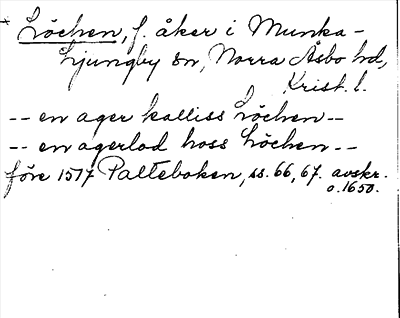 * Löchen, f. åker i Munka-
Ljungby sn, Norra Åsbo hd,
Krist. l.
-- en ager kalliss Löchen --
-- en agerlod hoss Löchen --
före 1517 Palteboken, ss. 66, 67. avskr.
o. 1650.